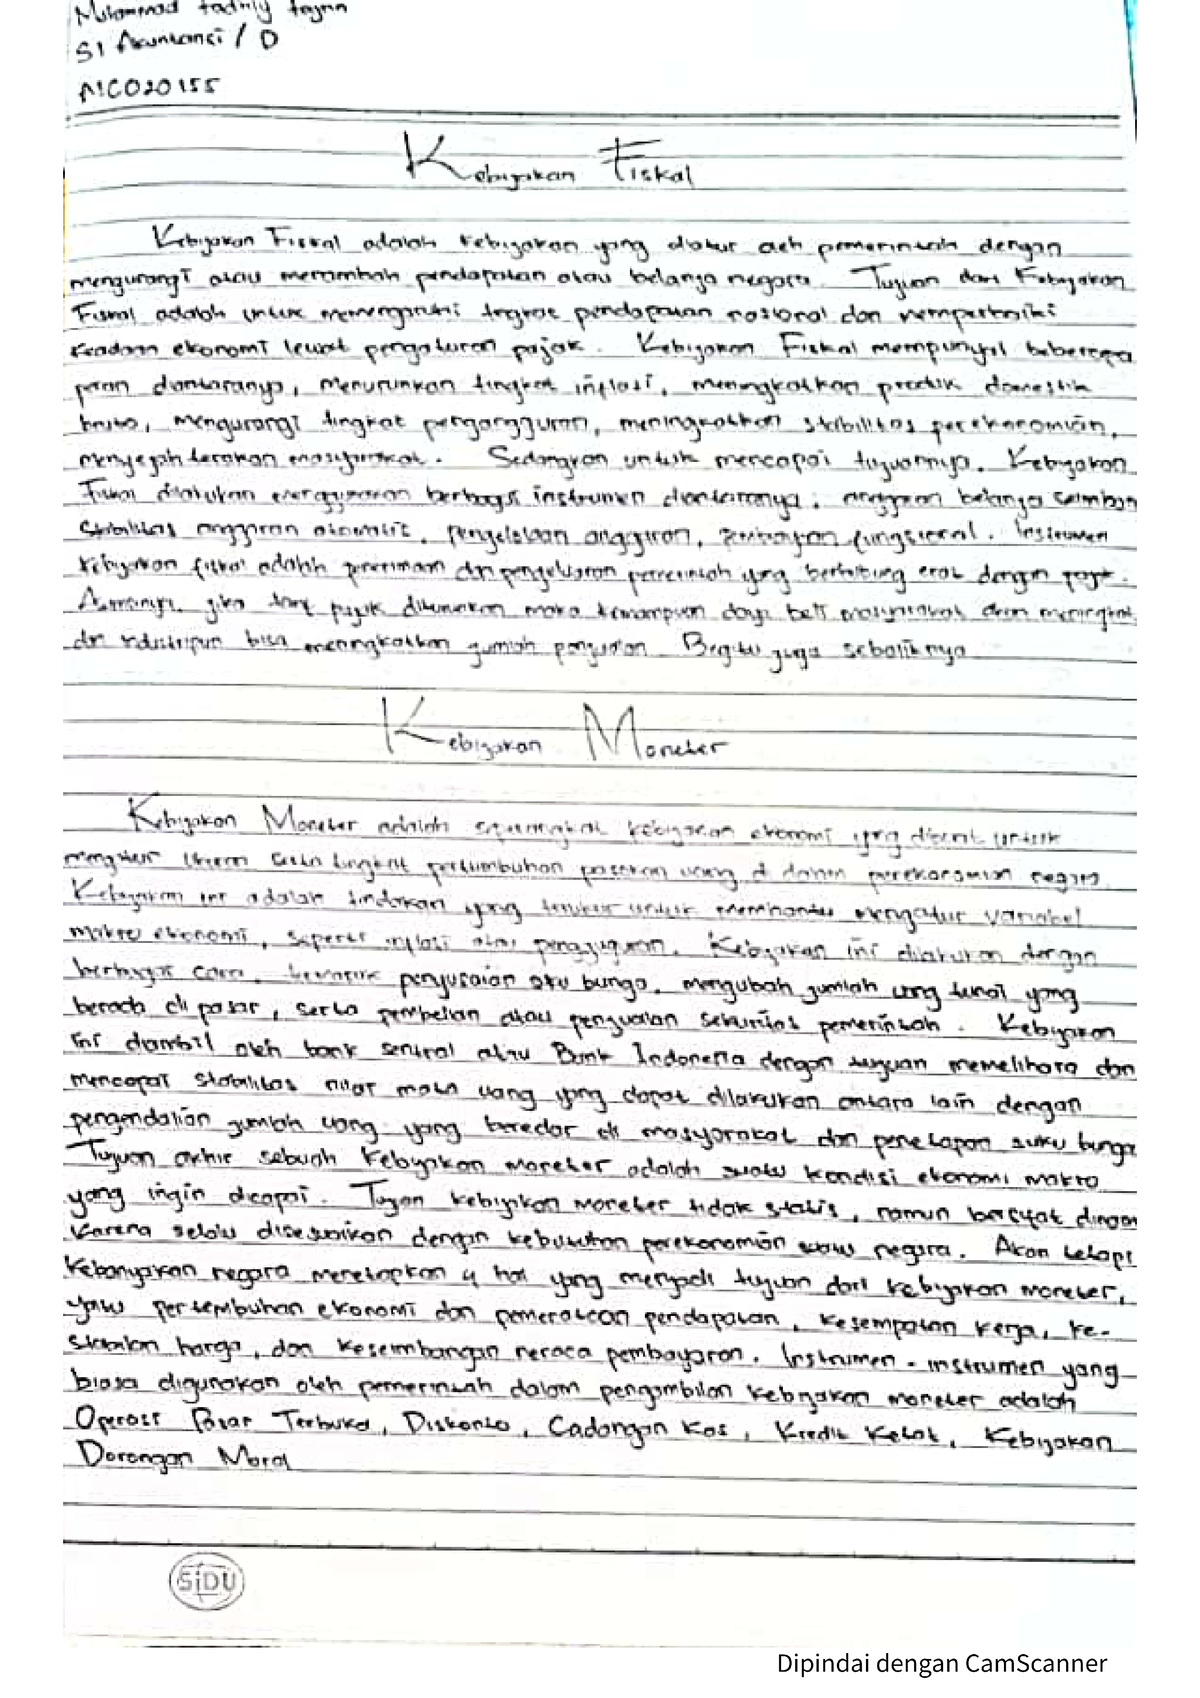 Muhammad
S1 Akuntansi / D
A1C020155
Kebijakan Fiskal
Kebijakan Fiskal adalah kebijakan yang diatur oleh pemerintah dengan
mengurangi atau menambah pendapatan atau belanja negara. Tujuan dari Kebijakan
Fiskal adalah untuk memengaruhi tingkat pendapatan nasional dan memperbaiki
keadaan ekonomi lewat pengaturan pajak. Kebijakan Fiskal mempunyai beberapa
peran diantaranya, menurunkan tingkat inflasi, meningkatkan produk domestik
bruto, mengurangi tingkat pengangguran, meningkatkan stabilitas perekonomian,
masyarakat. Sedangkan untuk mencapai tujuannya. Kebijakan
Fiskal dilakukan menggunakan berbagai instrumen diantaranya, anggaran belanja seimbang
Stabilitas anggaran otomatis, pengelolaan anggaran, pembiayaan fungsional. Instrumen
kebijakan fiskal adalah penerimaan dan pengeluaran pemerintah yang berhubung erat dengan pajak.
jika tarif pajak diturunkan maka kemampuan daya beli masyarakat akan meningkat
dan industripun bisa meningkatkan jumlah penjualan. Begitu juga sebaliknya
Kebijakan Moneter
Kebijakan Moneter adalah seperangkat kebijakan ekonomi yang dibuat untuk
mengatur ukuran serta tingkat pertumbuhan pasokan uang di dalam perekonomian negara.
Kebijakan ini adalah tindakan yang terukur untuk membantu mengatur variabel
makro ekonomi, seperti inflasi atau pengangguran. Kebijakan ini dilakukan dengan
berbagai cara, termasuk penyusaian suku bunga, mengubah jumlah uang tunai yang
berada di pasar, serta pembelian atau penjualan sekuritas pemerintah. Kebijakan
ini diambil oleh bank sentral atau Bank Indonesia dengan tujuan memelihara dan
mencapai stabilitas nilai mata uang yang dapat dilakukan antara lain dengan
pengendalian jumlah uang yang beredar di masyarakat dan penetapan suku bunga
Tujuan akhir sebuah kebijakan moneter adalah suatu kondisi ekonomi makro
yang ingin dicapai. Tujuan kebijakan moneter tidak statis, namun bersifat dinamis
karena selalu disesuaikan dengan kebutuhan perekonomian suatu negara. Akan tetapi
kebanyakan negara menetapkan 4 hal yang menjadi tujuan dari kebijakan moneter,
yaitu pertumbuhan ekonomi dan pemerataan pendapatan, kesempatan kerja, ke-
stabilan harga, dan keseimbangan neraca pembayaran. Instrumen-instrumen yang
biasa digunakan oleh pemerintah dalam pengambilan kebijakan moneter adalah
Operasi Pasar Terbuka, Diskonto, Cadangan Kas, Kredit Ketat, Kebijakan
Dorongan Moral
SiDU
Dipindai dengan CamScanner